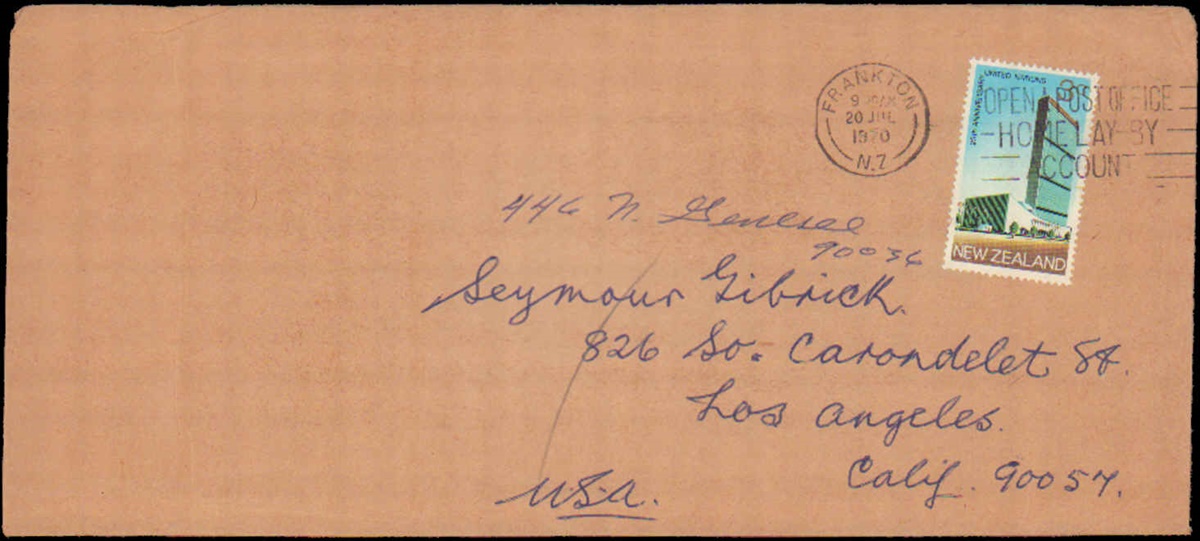 FRANKTON
20 JUL
1970
N.Z
OPEN A POST OFFICE
HOME LAY-BY
ACCOUNT
25TH ANNIVERSARY UNITED NATIONS
NEW ZEALAND
446 N. Genesee
90036
Seymour Gibrick.
826 So. Carondelet St.
Los Angeles.
Calif. 90057.
U.S.A.